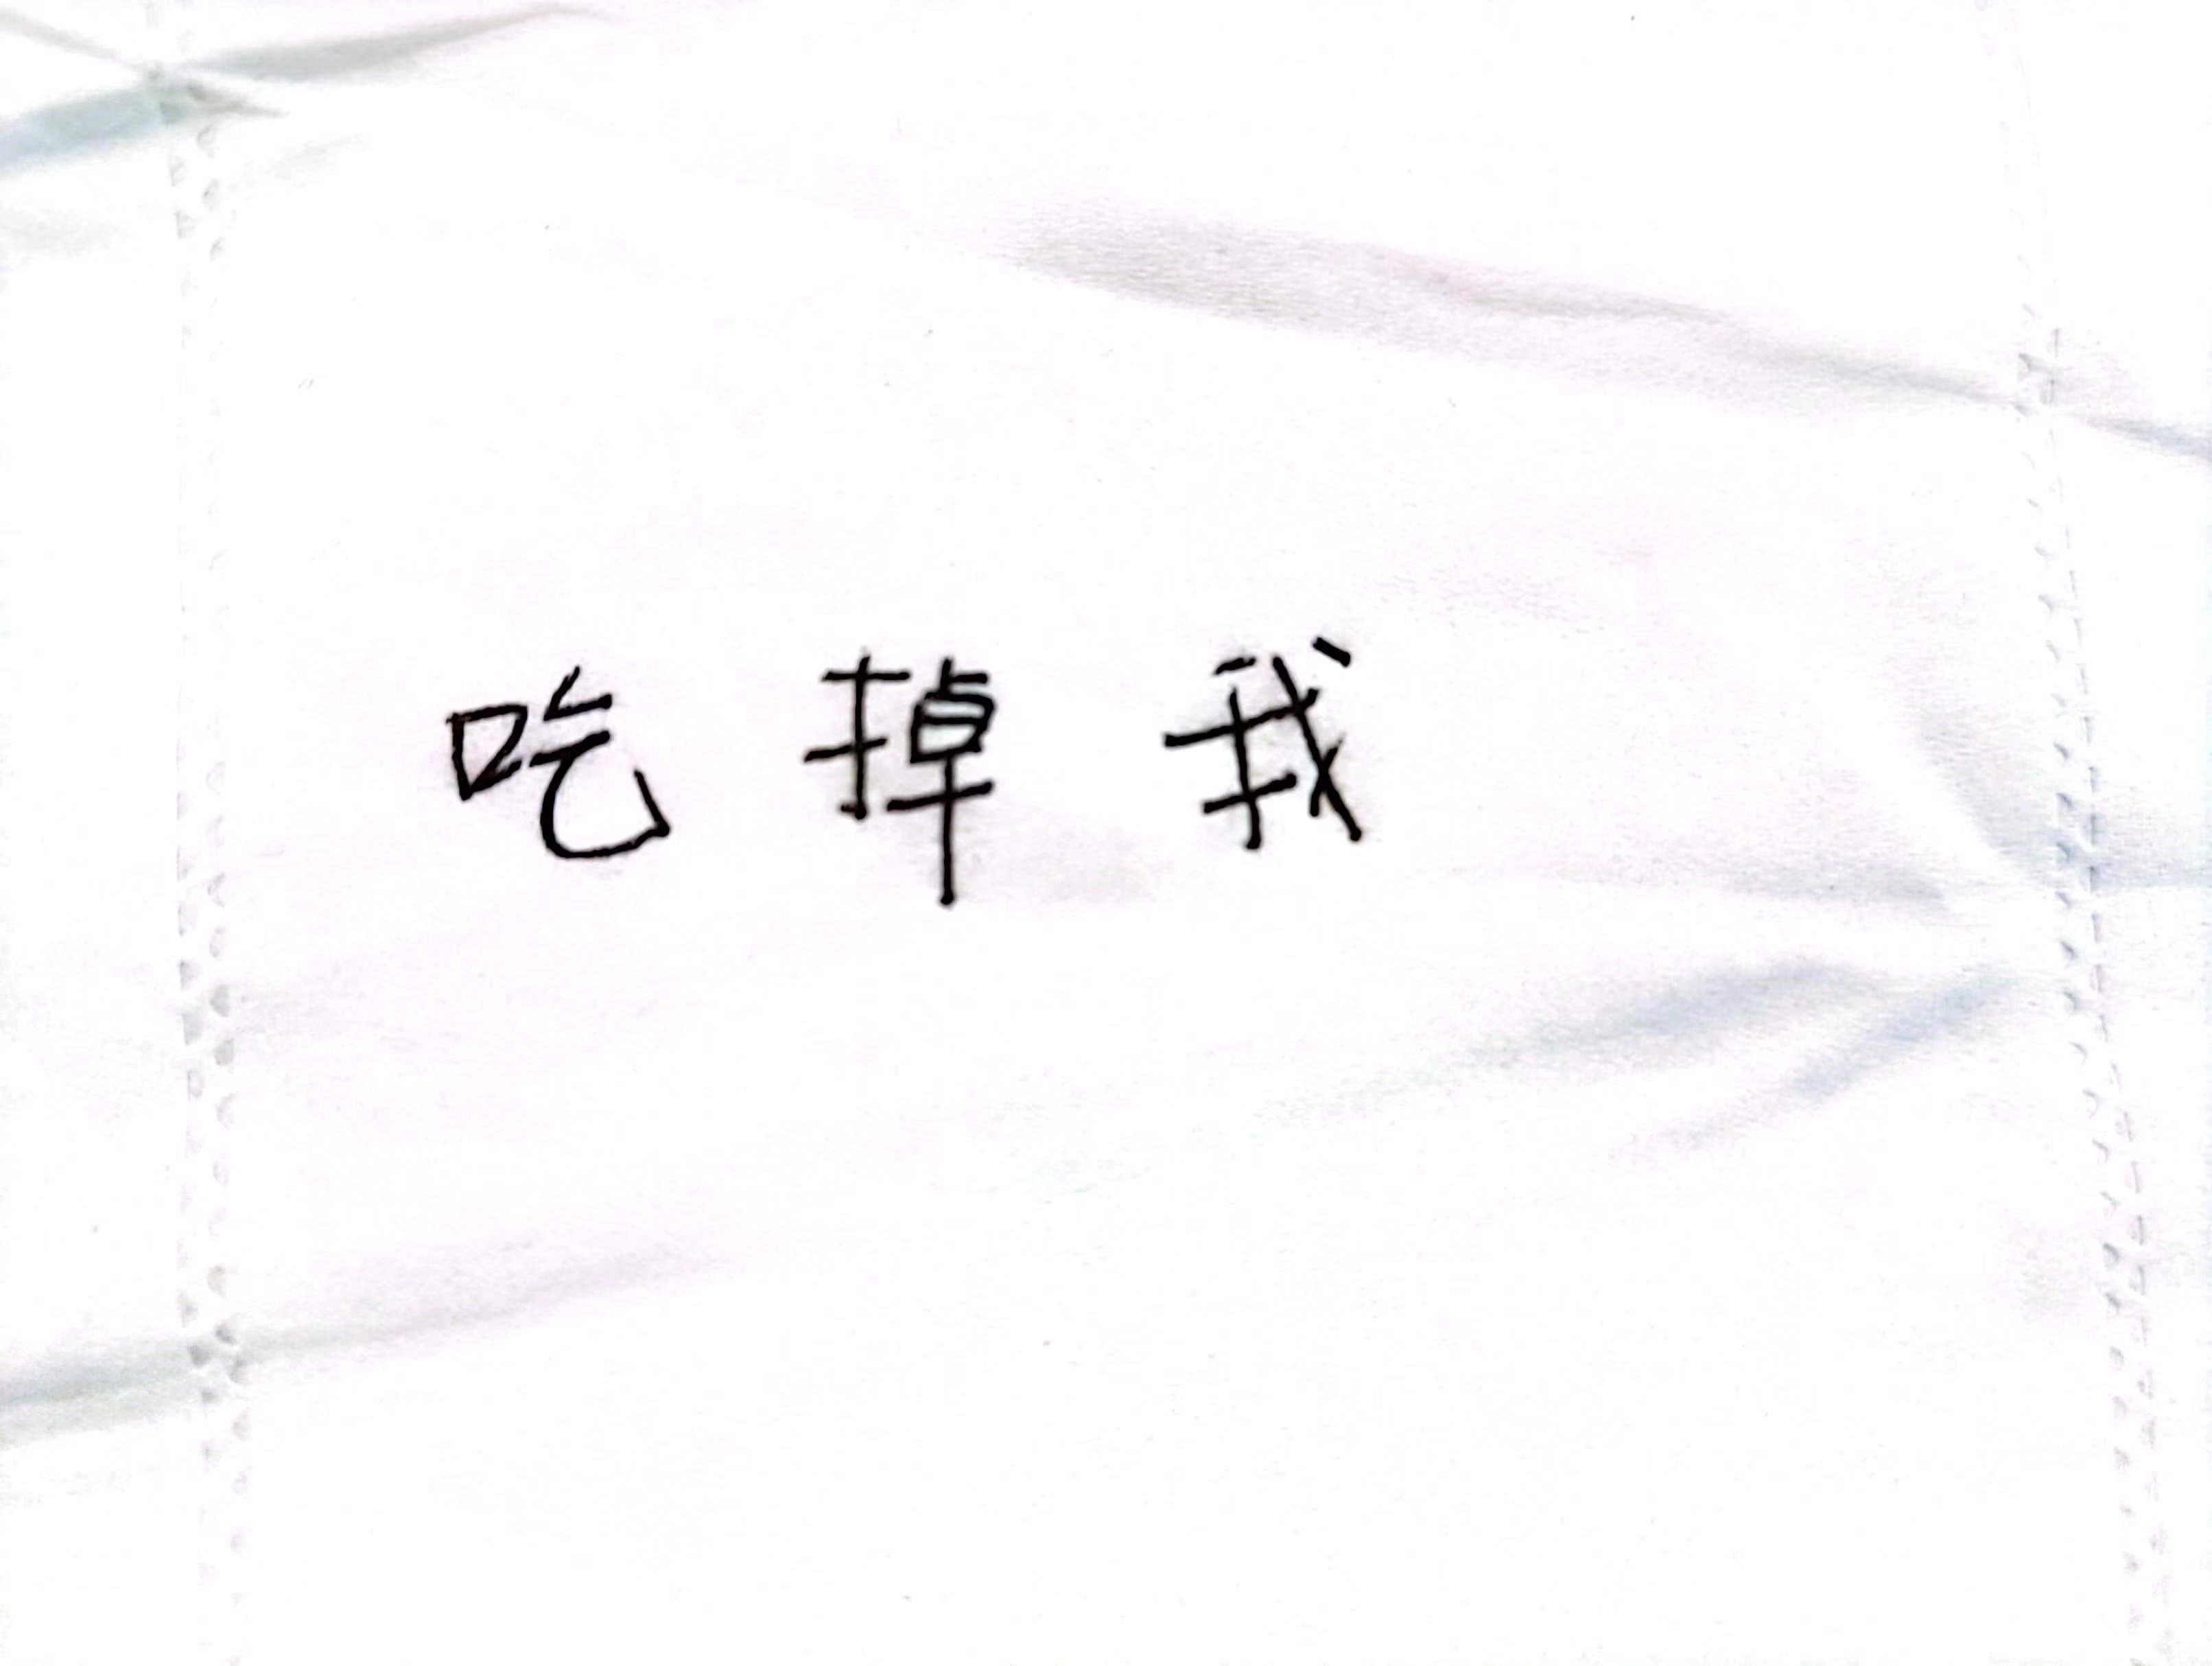 吃掉我